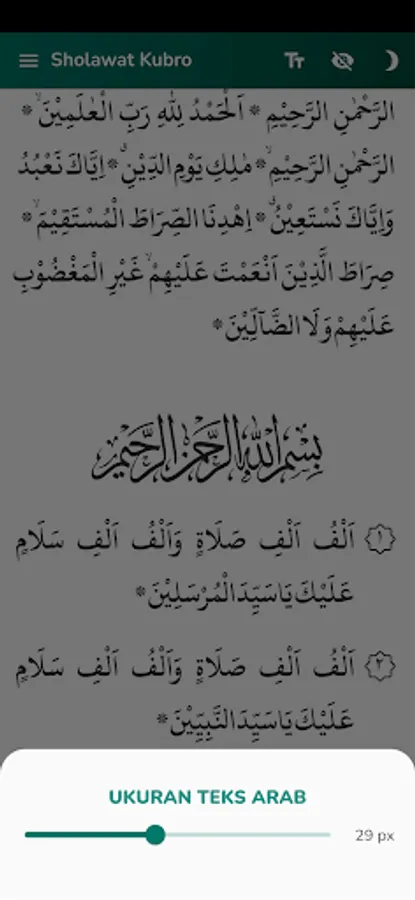 Sholawat Kubro
الرَّحْمٰنِ الرَّحِيْمِ * اَلْحَمْدُ لِلّٰهِ رَبِّ الْعٰلَمِيْنَۙ *
الرَّحْمٰنِ الرَّحِيْمِۙ * مٰلِكِ يَوْمِ الدِّيْنِۗ * اِيَّاكَ نَعْبُدُ
وَاِيَّاكَ نَسْتَعِيْنُۗ * اِهْدِنَا الصِّرَاطَ الْمُسْتَقِيْمَۙ *
صِرَاطَ الَّذِيْنَ اَنْعَمْتَ عَلَيْهِمْۙ غَيْرِ الْمَغْضُوْبِ
عَلَيْهِمْ وَلَا الضَّاۤلِّيْنَ *
بِسْمِ اللهِ الرَّحْمٰنِ الرَّحِيْمِ
١ اَلْفُ اَلْفِ صَلَاةٍ وَاَلْفُ اَلْفِ سَلَامٍ
عَلَيْكَ يَا سَيِّدَ الْمُرْسَلِيْنَ *
٢ اَلْفُ اَلْفِ صَلَاةٍ وَاَلْفُ اَلْفِ سَلَامٍ
عَلَيْكَ يَا سَيِّدَ النَّبِيِّيْنَ *
UKURAN TEKS ARAB
29 px